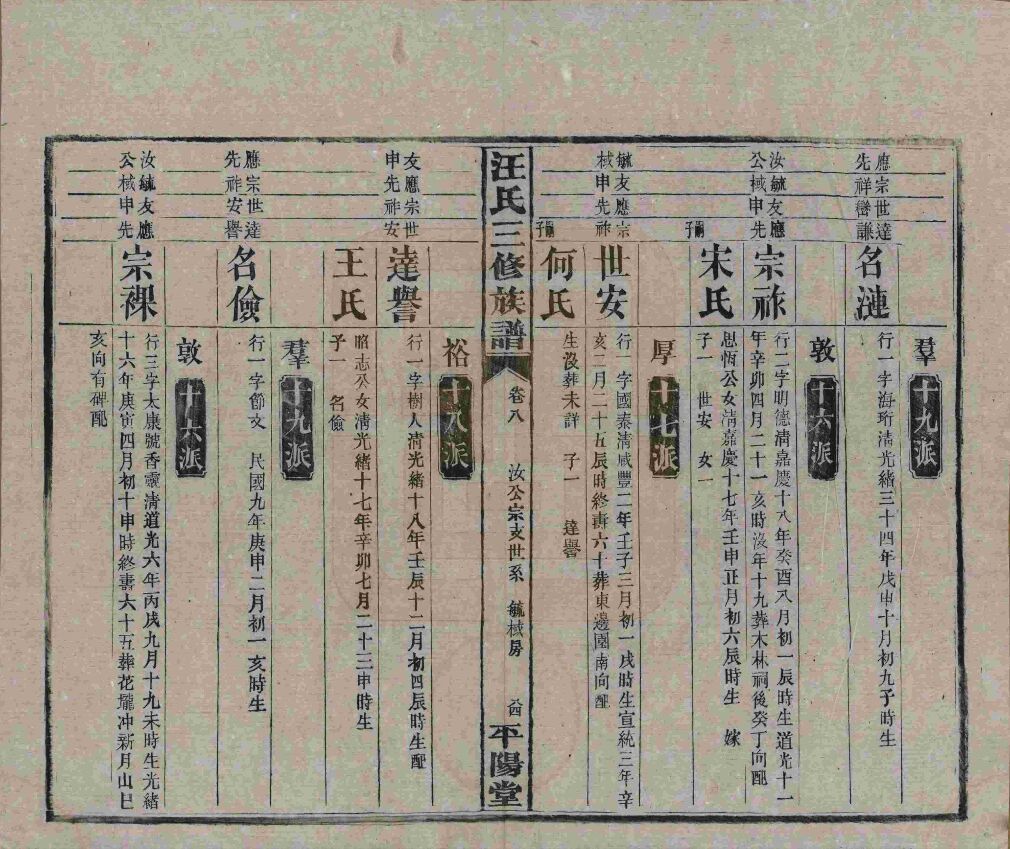 羣 十九派
應宗世達
先祥巒謙
名漣
行一字海珩淸光緒三十四年戊申十月初九子時生
敦 十六派
汝毓友應
公棫申先
宗祚
行二字明德淸嘉慶十八年癸酉八月初一辰時生道光十一
年辛卯四月二十一亥時沒年十九葬木林祠後癸丁向配
嗣子
宋氏
思恆公女淸嘉慶十七年壬申正月初六辰時生 嫁
子一 世安 女一
厚 十七派
毓友應宗
棫申先祚
世安
行一字國泰淸咸豐二年壬子三月初一戌時生宣統三年辛
亥二月二十五辰時終壽六十葬東邊園南向配
嗣子
何氏
生沒葬未詳 子一 達譽
汪氏三修族譜
卷八 汝公宗支世系 毓棫房 六四 平陽堂
裕 十八派
友應宗世
申先祚安
達譽
行一字樹人淸光緒十八年壬辰十二月初四辰時生配
王氏
昭志公女淸光緒十七年辛卯七月二十三申時生
子一 名儉
羣 十九派
應宗世達
先祚安譽
名儉
行一字節文 民國九年庚申二月初一亥時生
敦 十六派
汝毓友應
公棫申先
宗裸
行三字太康號香靈淸道光六年丙戌九月十九未時生光緒
十六年庚寅四月初十申時終壽六十五葬花壠冲新月山巳
亥向有碑配